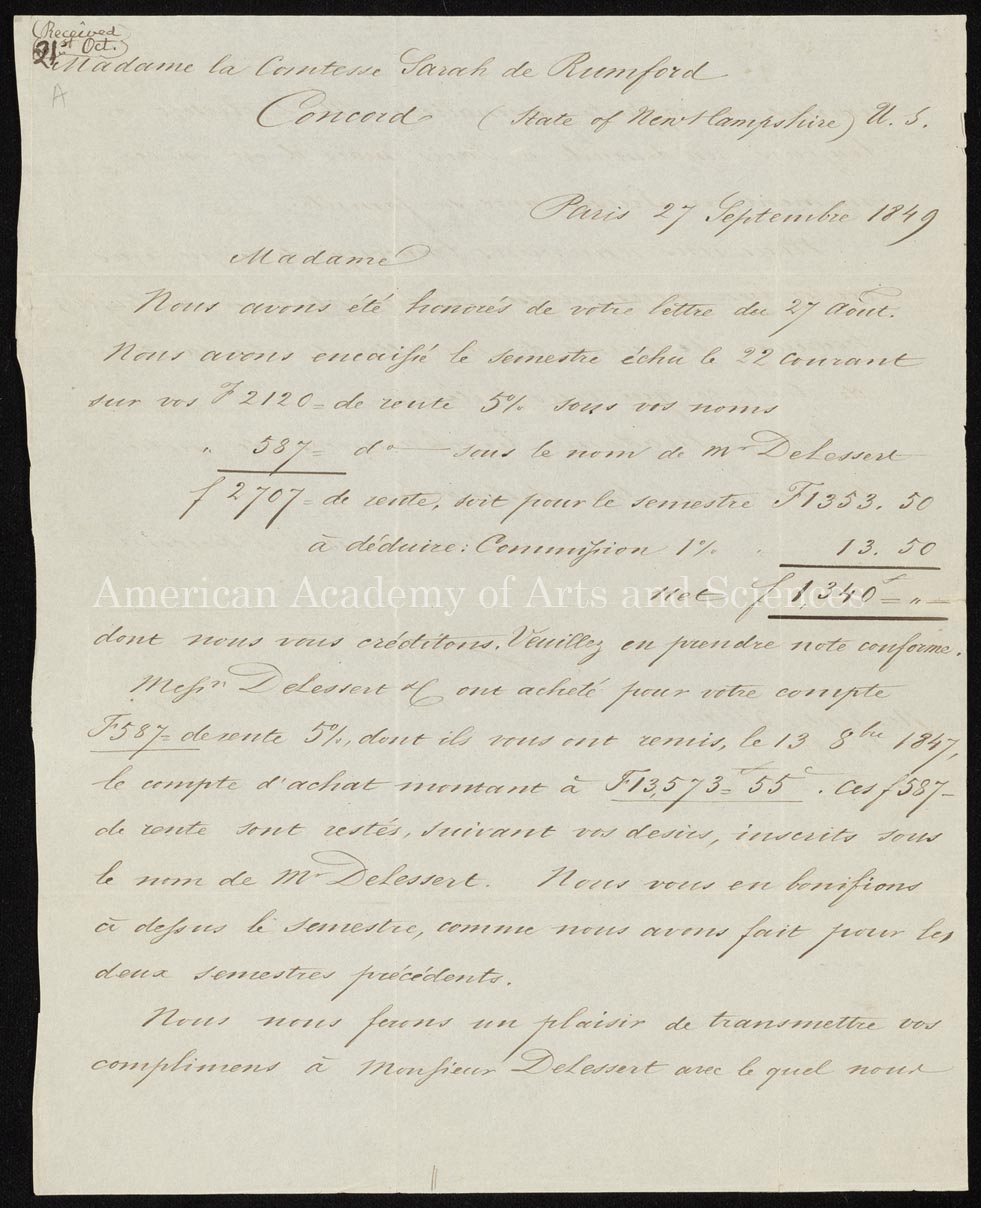 Received
21st Oct.
A
Madame la Comtesse Sarah de Rumford
Concord (State of New Hampshire) U. S.
Paris 27 Septembre 1849
Madame
Nous avons été honorés de votre lettre du 27 Août.
Nous avons encaissé le semestre échu le 22 courant
sur vos F 2120 = de rente 5% sous vos noms
" 587 = do sous le nom de Mr DeLessert
f 2707 = de rente, soit pour le semestre F 1353. 50
à déduire: Commission 1% " 13. 50
Net f 1,340 = " =
American Academy of Arts and Sciences
dont nous vous créditons. Veuillez en prendre note conforme.
Messrs DeLessert & C ont acheté pour votre compte
F 587 = de rente 5%, dont ils vous ont remis, le 13 8bre 1847,
le compte d'achat montant à F 13,573 = 55 c. Ces f 587 =
de rente sont restés, suivant vos desirs, inscrits sous
le nom de Mr DeLessert. Nous vous en bonifions
ci dessus le semestre, comme nous avons fait pour les
deux semestres précédents.
Nous nous ferons un plaisir de transmettre vos
complimens à Monsieur DeLessert avec le quel nous